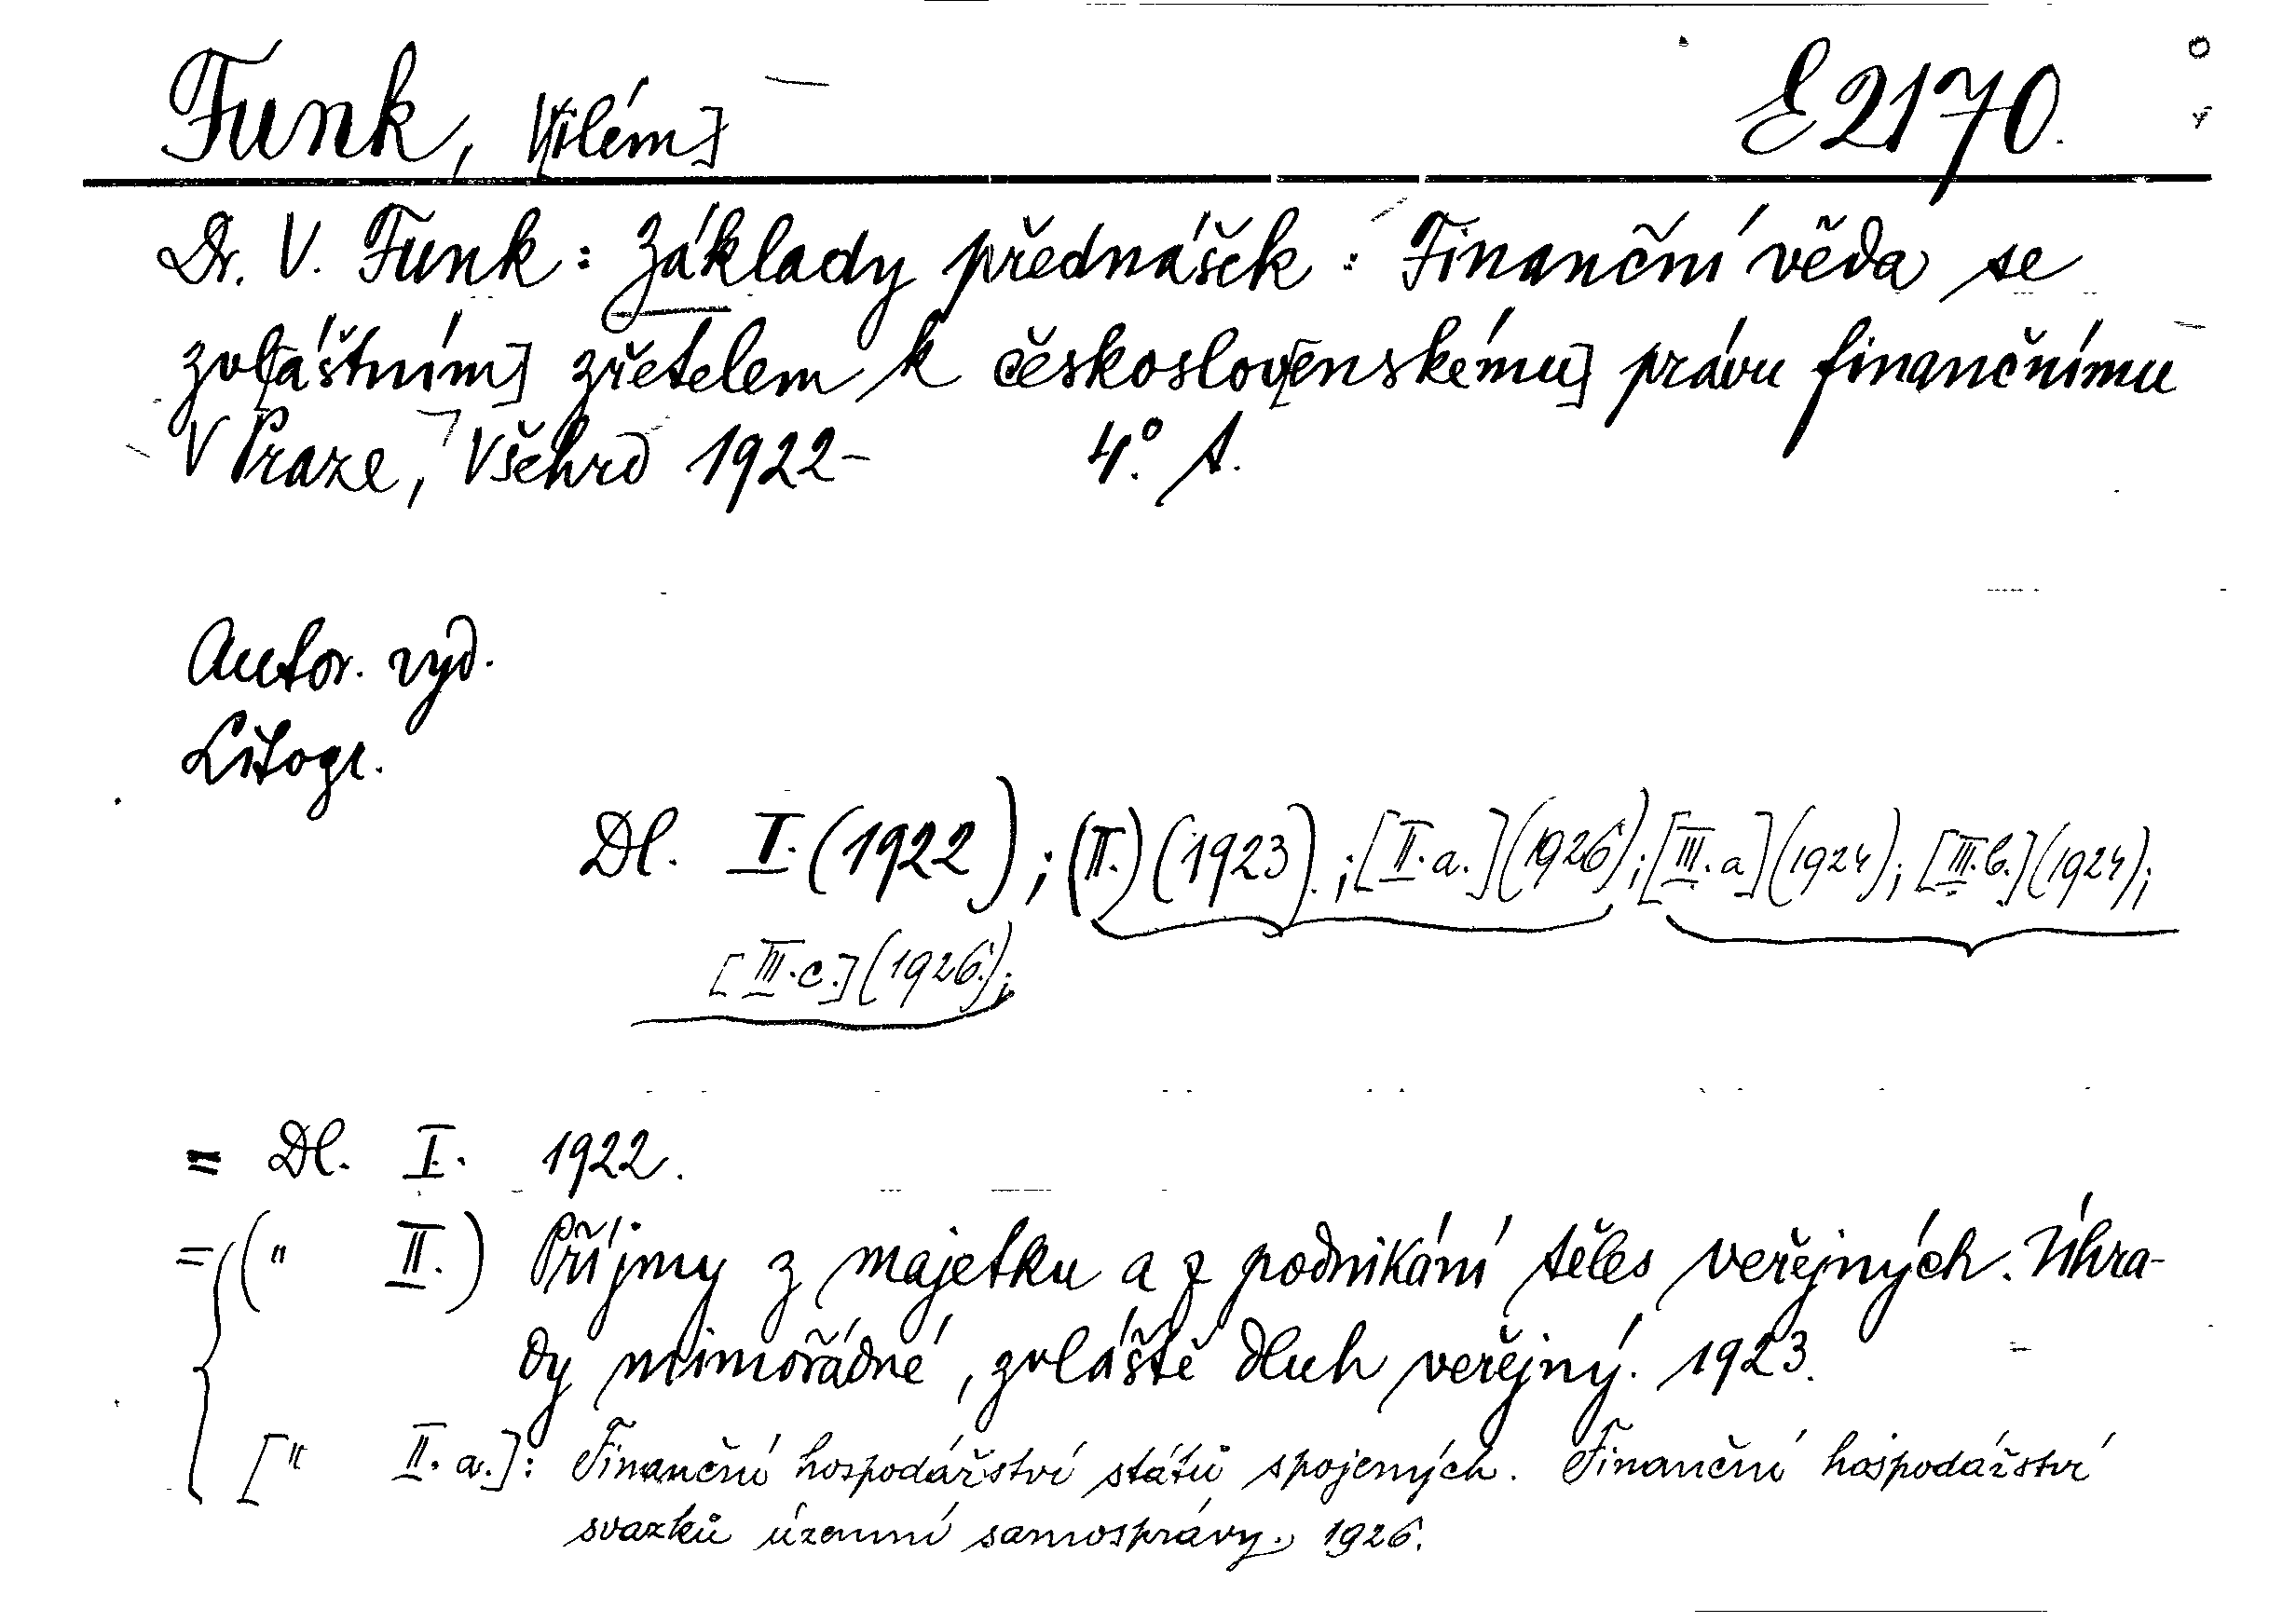 Funk, V[ilém] E 2170.
Dr. V. Funk: Základy přednášek: Finanční věda se
zvl[áštním] zřetelem k českoslov[enskému] právu finančnímu
V Praze, Všehrd 1922- 4°. A.
Autor. vyd.
Litogr.
Dl. I. (1922); (II.) (1923).; [II. a.] (1926); [III. a] (1924); [III. b.] (1924);
[III. c.] (1926.);
= Dl. I. 1922.
= (" II.) Příjmy z majetku a z podnikání těles veřejných. Úhra-
dy mimořádné, zvláště dluh veřejný. 1923.
[" II. a.]: Finanční hospodářství států spojených. Finanční hospodářství
svazků územní samosprávy. 1926.